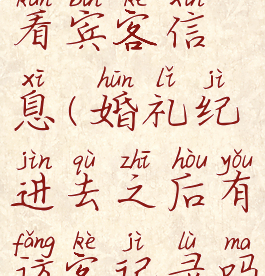 kàn bīn kè xìn
看宾客信
xī hūn lǐ jì
息(婚礼纪
jìn qù zhī hòu yǒu
进去之后有
fǎng kè jì lù ma
访客记录吗